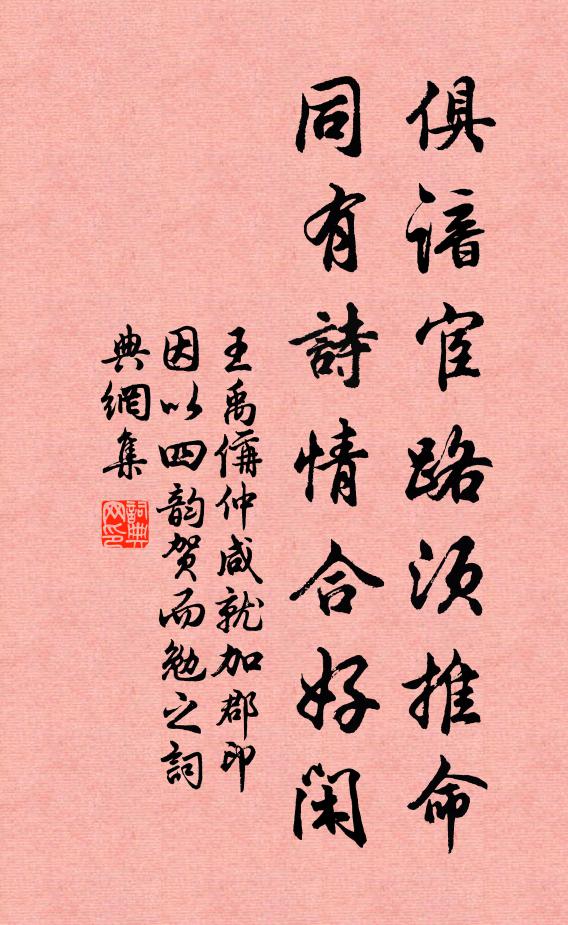 俱谙宦路须推命
同有詩情合好闲
王禹偁仲咸就加郡印
因以四韵贺而勉之詞
典網集
詞典網印